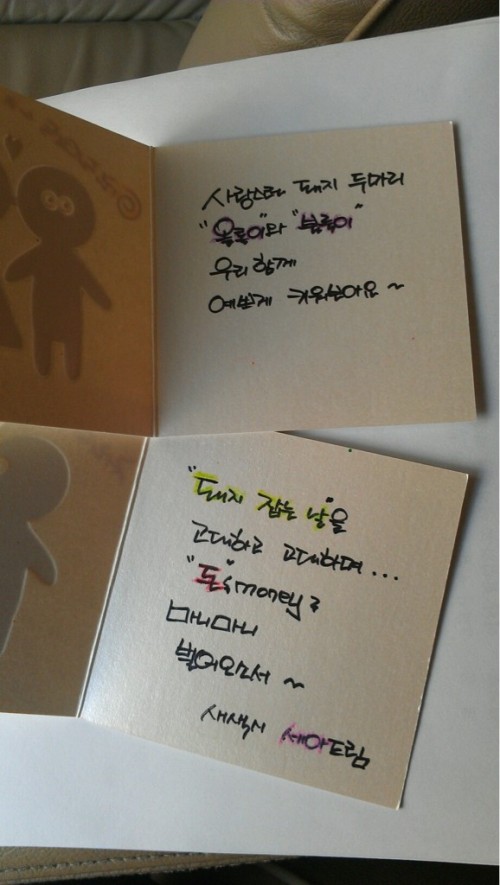 사랑스런 돼지 두마리
"올록이"와 "볼록이"
우리 함께
예쁘게 키워보아요~
"돼지 잡는 날"을
고대하고 고대하며...
"돈"(money)
머니머니
벌어오소서~
새색시 세아드림